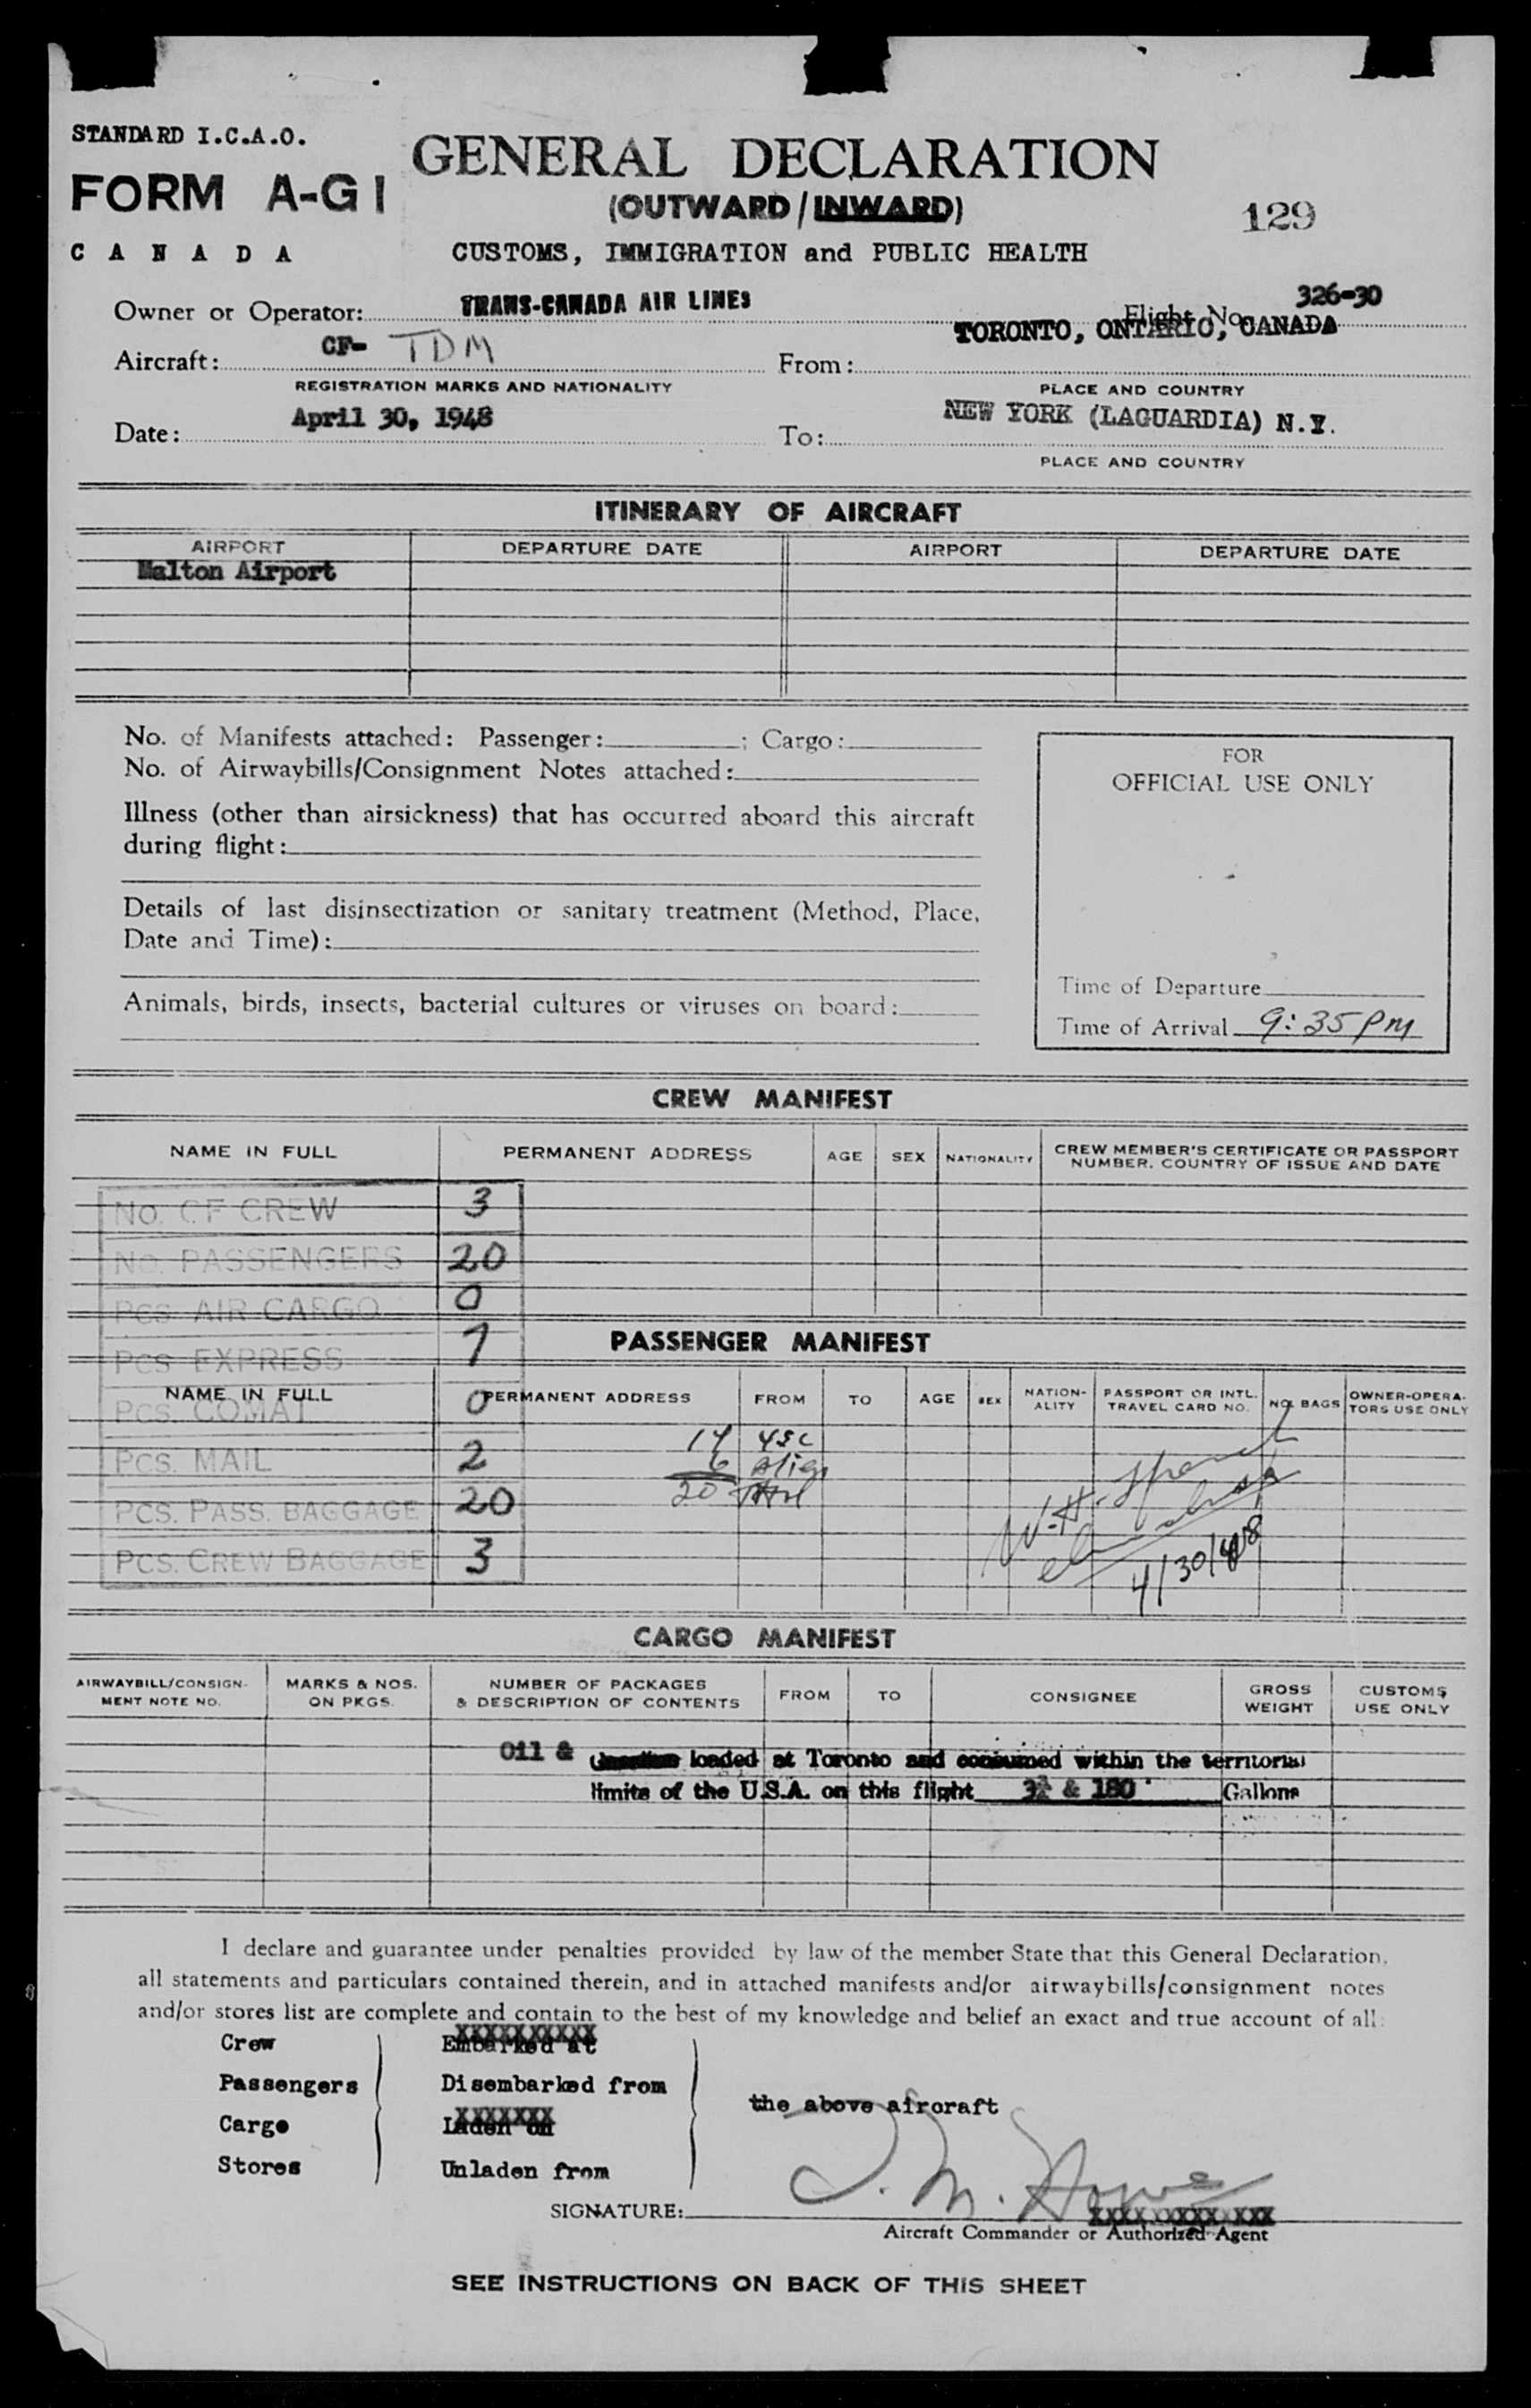 STANDARD I.C.A.O.
FORM A-G1
CANADA
GENERAL DECLARATION
(OUTWARD/INWARD)
129
CUSTOMS, IMMIGRATION and PUBLIC HEALTH
Owner or Operator: TRANS-CANADA AIR LINES Flight No. 326-30
Aircraft: CF- TDM From: TORONTO, ONTARIO, CANADA
REGISTRATION MARKS AND NATIONALITY PLACE AND COUNTRY
Date: April 30, 1948 To: NEW YORK (LAGUARDIA) N.Y.
PLACE AND COUNTRY
ITINERARY OF AIRCRAFT
AIRPORT DEPARTURE DATE AIRPORT DEPARTURE DATE
Malton Airport
No. of Manifests attached: Passenger: ; Cargo:
No. of Airwaybills/Consignment Notes attached:
Illness (other than airsickness) that has occurred aboard this aircraft
during flight:
Details of last disinsectization or sanitary treatment (Method, Place,
Date and Time):
Animals, birds, insects, bacterial cultures or viruses on board:
FOR
OFFICIAL USE ONLY
Time of Departure
Time of Arrival 9:35 PM
CREW MANIFEST
NAME IN FULL PERMANENT ADDRESS AGE SEX NATIONALITY CREW MEMBER'S CERTIFICATE OR PASSPORT
NUMBER, COUNTRY OF ISSUE AND DATE
NO. OF CREW 3
NO. PASSENGERS 20
PCS AIR CARGO 0
PCS EXPRESS 7
PCS. COMAT 0
PCS. MAIL 2
PCS. PASS. BAGGAGE 20
PCS. CREW BAGGAGE 3
PASSENGER MANIFEST
NAME IN FULL PERMANENT ADDRESS FROM TO AGE SEX NATION-
ALITY PASSPORT OR INTL.
TRAVEL CARD NO. NO. BAGS OWNER-OPERA-
TORS USE ONLY
14 USC
6 Alig
20
W.H.
4/30/48
CARGO MANIFEST
AIRWAYBILL/CONSIGN-
MENT NOTE NO. MARKS & NOS.
ON PKGS. NUMBER OF PACKAGES
& DESCRIPTION OF CONTENTS FROM TO CONSIGNEE GROSS
WEIGHT CUSTOMS
USE ONLY
Oil & Gasoline loaded at Toronto and consumed within the territorial
limits of the U.S.A. on this flight & 180 Gallons
I declare and guarantee under penalties provided by law of the member State that this General Declaration,
all statements and particulars contained therein, and in attached manifests and/or airwaybills/consignment notes
and/or stores list are complete and contain to the best of my knowledge and belief an exact and true account of all:
Crew Embarked at
Passengers Disembarked from
the above aircraft
Cargo Laden on
Stores Unladen from
SIGNATURE: J. M. Howe
Aircraft Commander or Authorized Agent
SEE INSTRUCTIONS ON BACK OF THIS SHEET